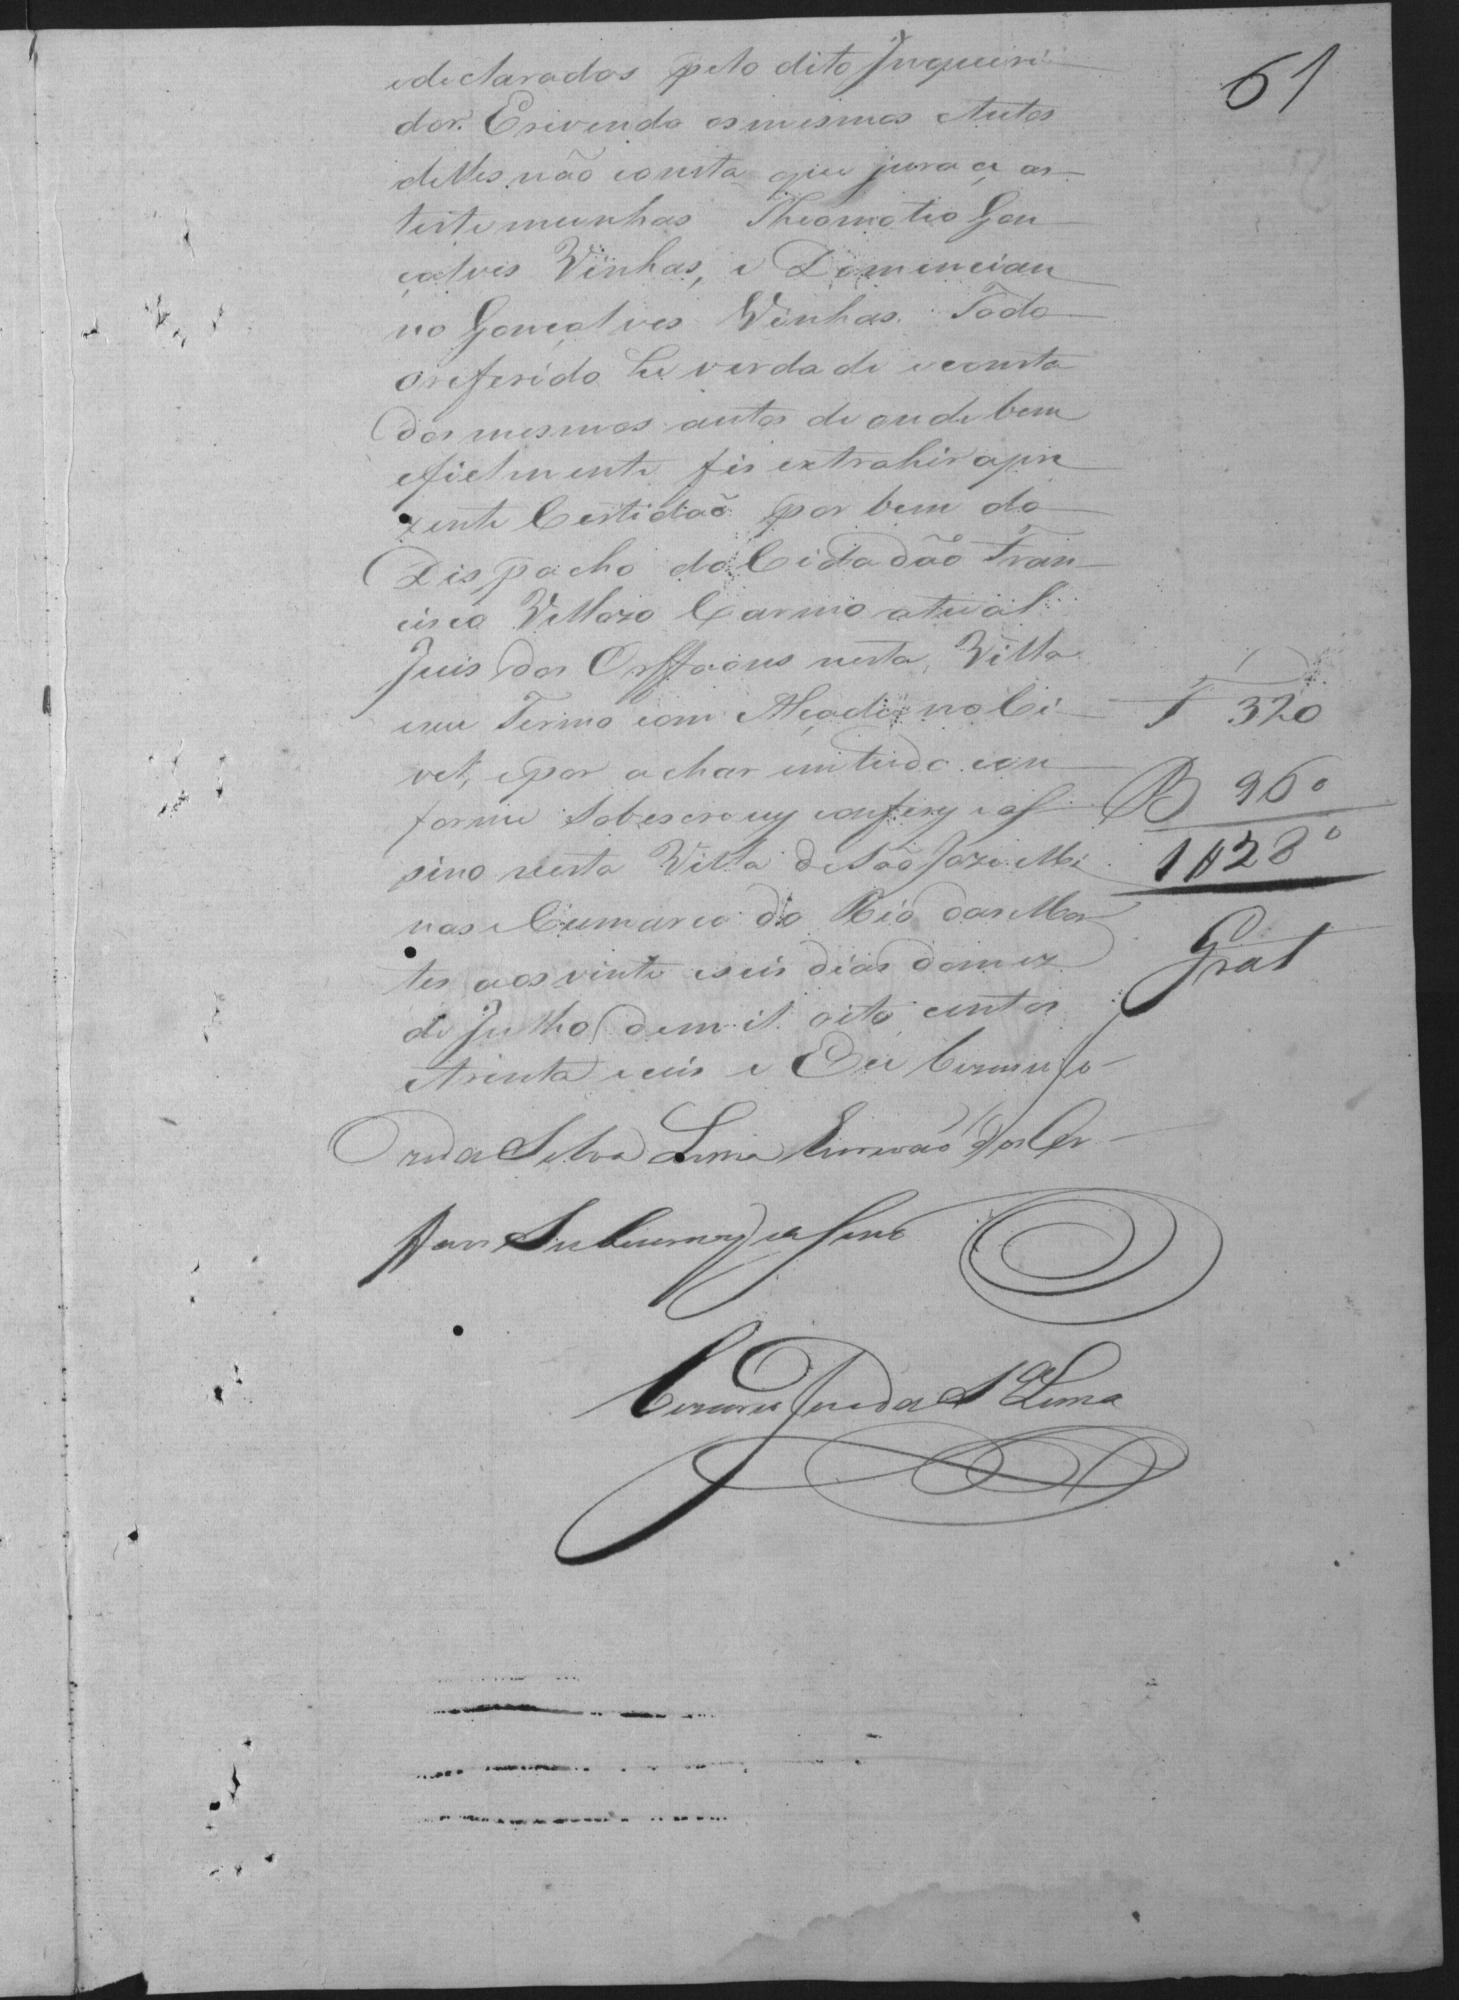 61
edeclarados pelo dito Inqueiri
dor. Erivendo os mesmos Autos
delles não consta que jurace as
testemunhas Theomotio Gon
çalves Vinhas, e Domincian
no Gonçalves Vinhas. Todo
oreferido he verdade econsta
dos mesmos autos de onde bem
efielmente fis extrahir apre
zente Certidaõ por bem do
Dispacho do Cidadão Fran
cisco Vellozo Carmo atual
Juis dos Orffaons nesta Villa
eseu Termo com Alçada no Ci
vel, epor achar emtudo con
forme sobescrevy confery eas
sino nesta Villa de São Joze Mi
nas eCumarca do Rio das Mor
tes aos vinte eseis dias domez
de Julho demil oito centos
etrinta eseis e Eu
da Silva Lima Escrivão dos Or
Subscrevy e asino
da Sª Lima
320
B 960
1#280
Grat